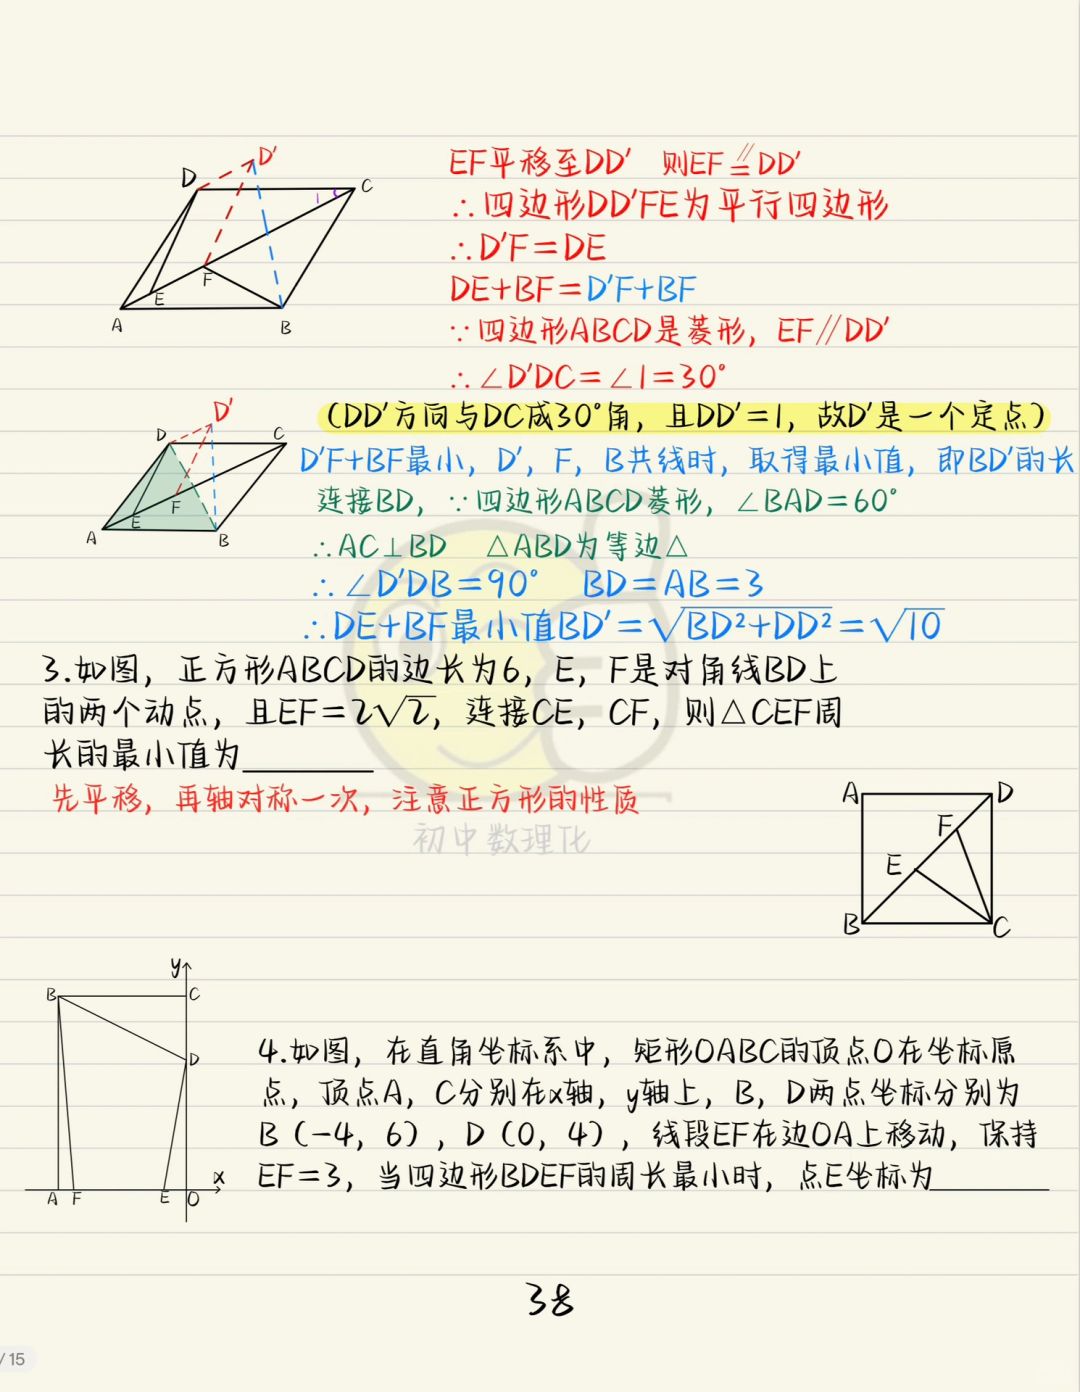 D′
D
C
1
F
E
A
B
EF平移至DD′ 则EF⫽=DD′
∴四边形DD′FE为平行四边形
∴D′F=DE
DE+BF=D′F+BF
∵四边形ABCD是菱形，EF//DD′
∴∠D′DC=∠1=30°
（DD′方向与DC成30°角，且DD′=1，故D′是一个定点）
D′
D
C
F
E
A
B
D′F+BF最小，D′，F，B共线时，取得最小值，即BD′的长
连接BD，∵四边形ABCD菱形，∠BAD=60°
∴AC⊥BD △ABD为等边△
∴∠D′DB=90° BD=AB=3
∴DE+BF最小值BD′=√BD²+DD²=√10
3.如图，正方形ABCD的边长为6，E，F是对角线BD上
的两个动点，且EF=2√2，连接CE，CF，则△CEF周
长的最小值为______
先平移，再轴对称一次，注意正方形的性质
初中数理化
A
D
F
E
B
C
y
B
C
D
x
A
F
E
O
4.如图，在直角坐标系中，矩形OABC的顶点O在坐标原
点，顶点A，C分别在x轴，y轴上，B，D两点坐标分别为
B（-4，6），D（0，4），线段EF在边OA上移动，保持
EF=3，当四边形BDEF的周长最小时，点E坐标为______
38
/15